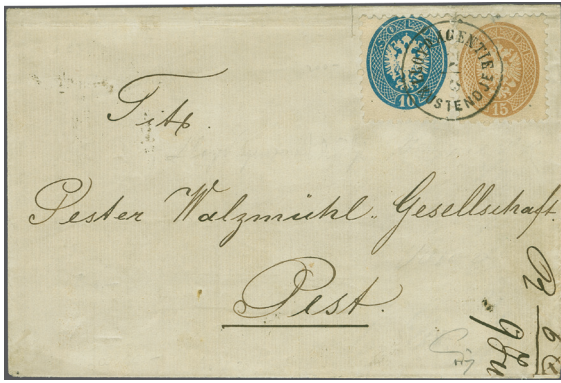 10
15
KÜSTENDJE
Titt.
Pester Walzmühl-Gesellschaft.
Pest.